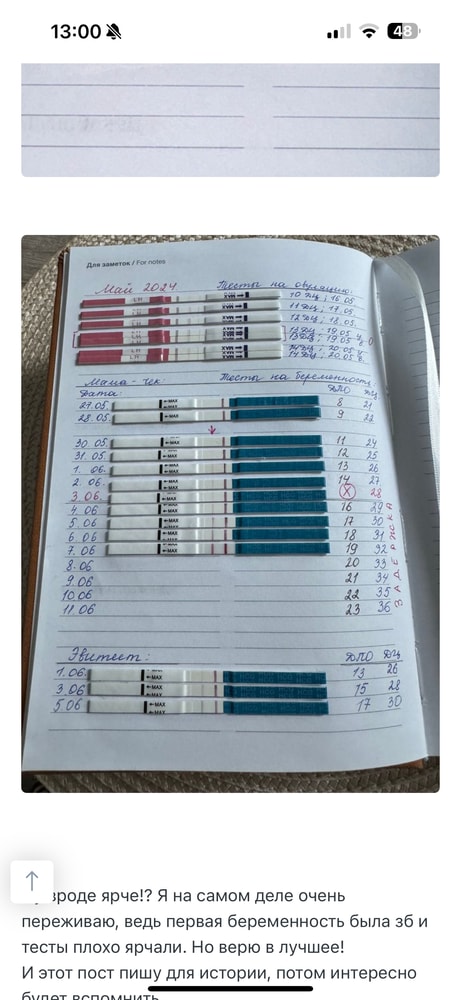 13:00 48
Для заметок / For notes
Май 2024 Тесты на овуляцию:
10 ДЦ; 16.05.
11 ДЦ; 17.05.
12 ДЦ; 18.05.
13 ДЦ; 19.05
13 ДЦ; 19.05 в. О
14 ДЦ; 20.05
14 ДЦ; 20.05 в.
Мама-чек Тесты на беременность
Дата: ДПО ДЦ
27.05. ←MAX 8 21
28.05. ←MAX 9 22
30.05 ←MAX 11 24
31.05 ←MAX 12 25
1.06. ←MAX 13 26
2.06 ←MAX 14 27
3.06. ←MAX X 28
4.06 ←MAX 16 29
5.06 ←MAX 17 30
6.06 ←MAX 18 31
7.06 ←MAX 19 32
8.06 20 33
9.06 21 34
10.06 22 35
11.06 23 36
ЗАДЕРЖКА
Эвитест: ДПО ДЦ
1.06. ←MAX 13 26
3.06 ←MAX 15 28
5.06 ←MAX 17 30
вроде ярче!? Я на самом деле очень
переживаю, ведь первая беременность была зб и
тесты плохо ярчали. Но верю в лучшее!
И этот пост пишу для истории, потом интересно
будет вспомнить